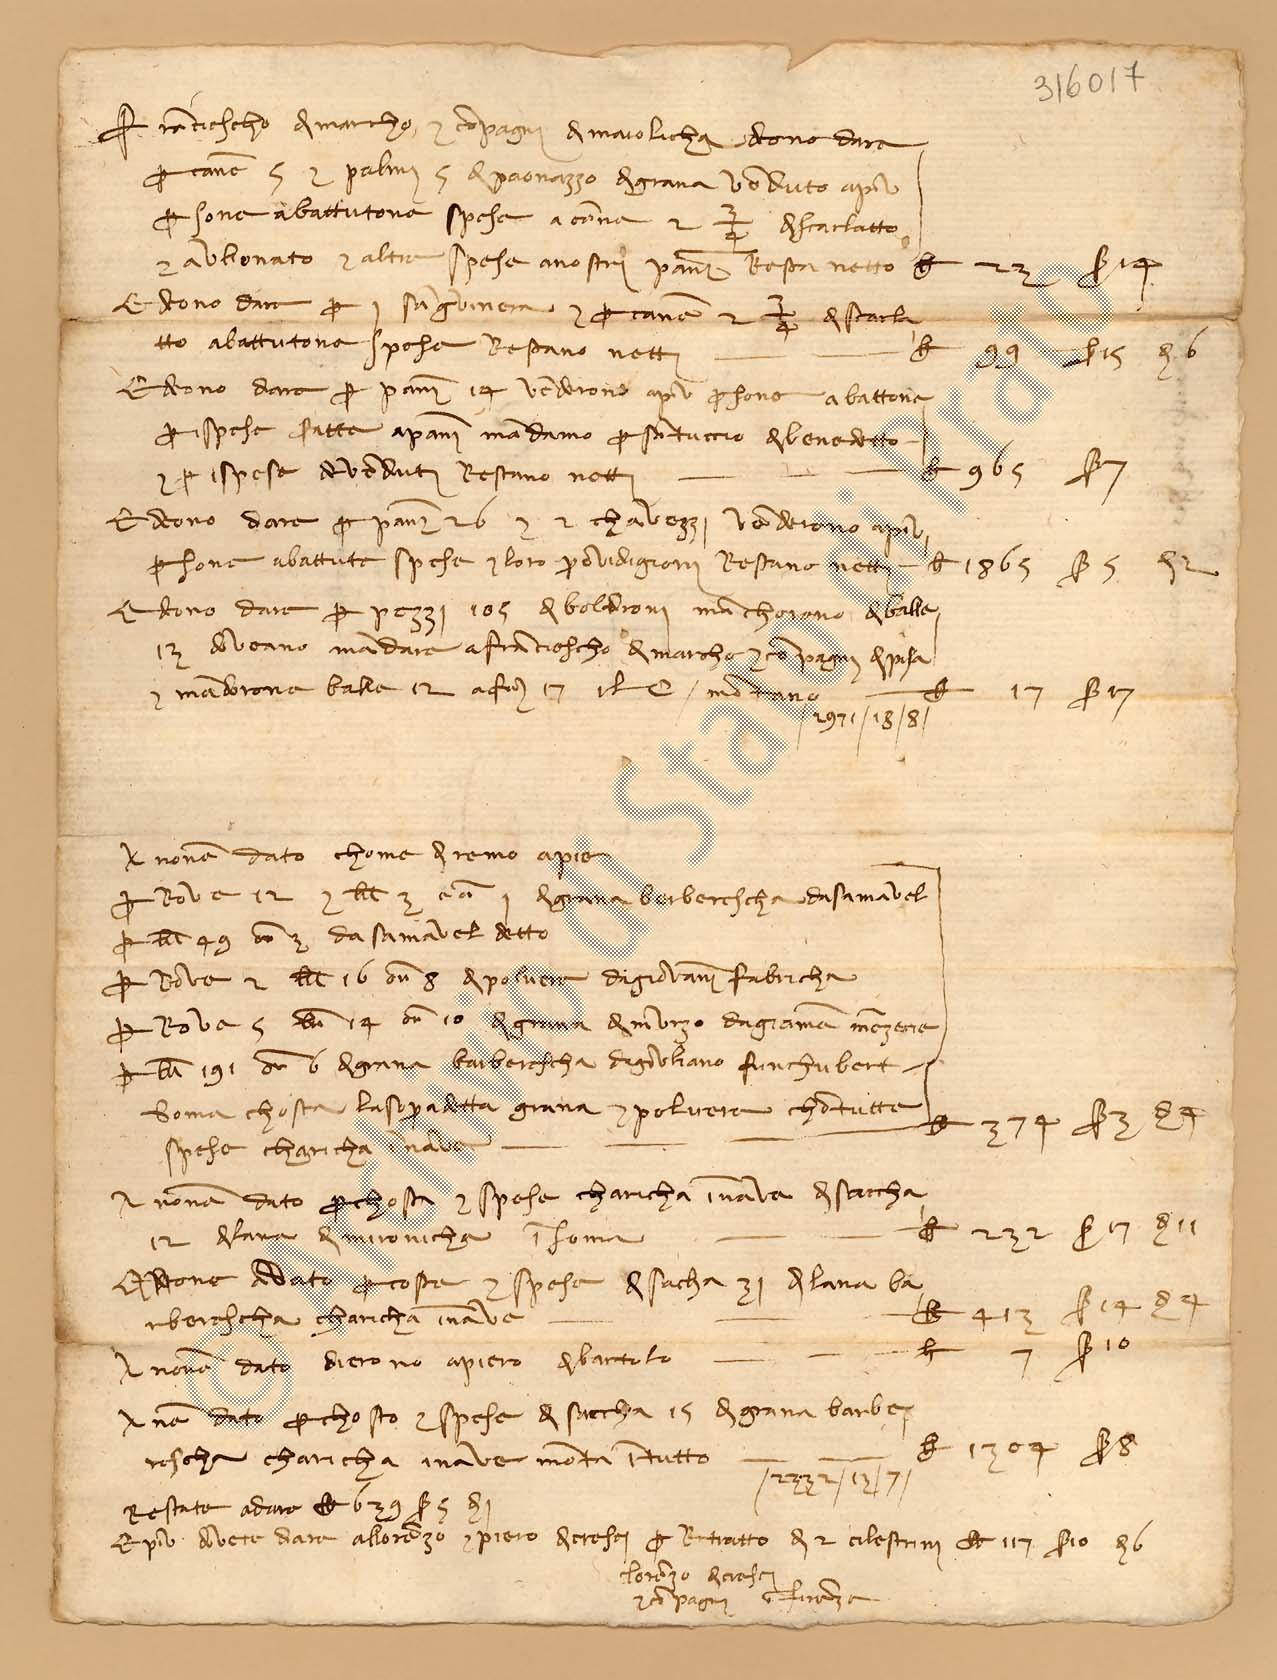 316017
Franciescho di marcho e conpagni di maiolicha deono dare
per cane 5 e palmi 5 di paonazzo di grana venduto a più
persone abattutone spese a cane 2 3/4 di scarlatto
e a vllonato e altre spese a nostri panni Resta netto lb 23 s 14
E deono dare per 1 sanguinera e per cane 2 3/4 di scarla
tto abattutone spese Restano netti lb 99 s 15 d 6
E deono dare per panni 14 venderono a più persone abattone
per ispese fatte a panni mandamo per santuccio di benedetto
e per ispese di venduti Restano netti lb 965 s 7
E deono dare per panni 26 e 2 chavezzi venderono a più
persone abattute spese e loro providigioni Restano netti lb 1865 s 5 d 2
E deono dare per pezzi 105 di boldroni manchorono di balle
13 doveano mandare a franciescho di marcho e conpagni di pisa
e mandorone balle 12 a fior 17 il C montano lb 17 s 17
2971 / 13 / 8
E nonne dato chome diremo apie
per Rove 12 e lb 3 on 1 di grana berberescha da samavel
per lb 49 on 3 da samavel detto
per Rove 2 lb 16 on 8 di polvere da giovanni fabricha
per Rove 5 lb 14 on 10 di grana di murzo da giame
per lb 191 on 6 di grana barberescha da givliano
Soma chosta la sopradetta grana e polvere chontutte
spese charicha in nave lb 374 s 3 d 4
E nonne dato per chosta e spese charicha in nave di saccha
12 di lana di minoricha in soma lb 232 s 17 d 11
E anone dato per coste e spese di sacha 31 di lana ba
rberescha charicha in nave lb 413 s 14 d 4
E nonne dato dierono a piero di bartolo lb 7 s 10
E nne dato per chosto e spese di saccha 15 di grana barbe
rescha charicha in nave monta in tutto lb 1304 s 8
2332 / 13 / 7
Restate a dare lb 639 s 5 d 1
E più dovete dare a llorenzo e piero di cresci per Ritratto di 2 cilestrini lb 117 s 10 d 6
lorenzo di cresci
e conpagni in firenze
© Archivio di Stato di Prato